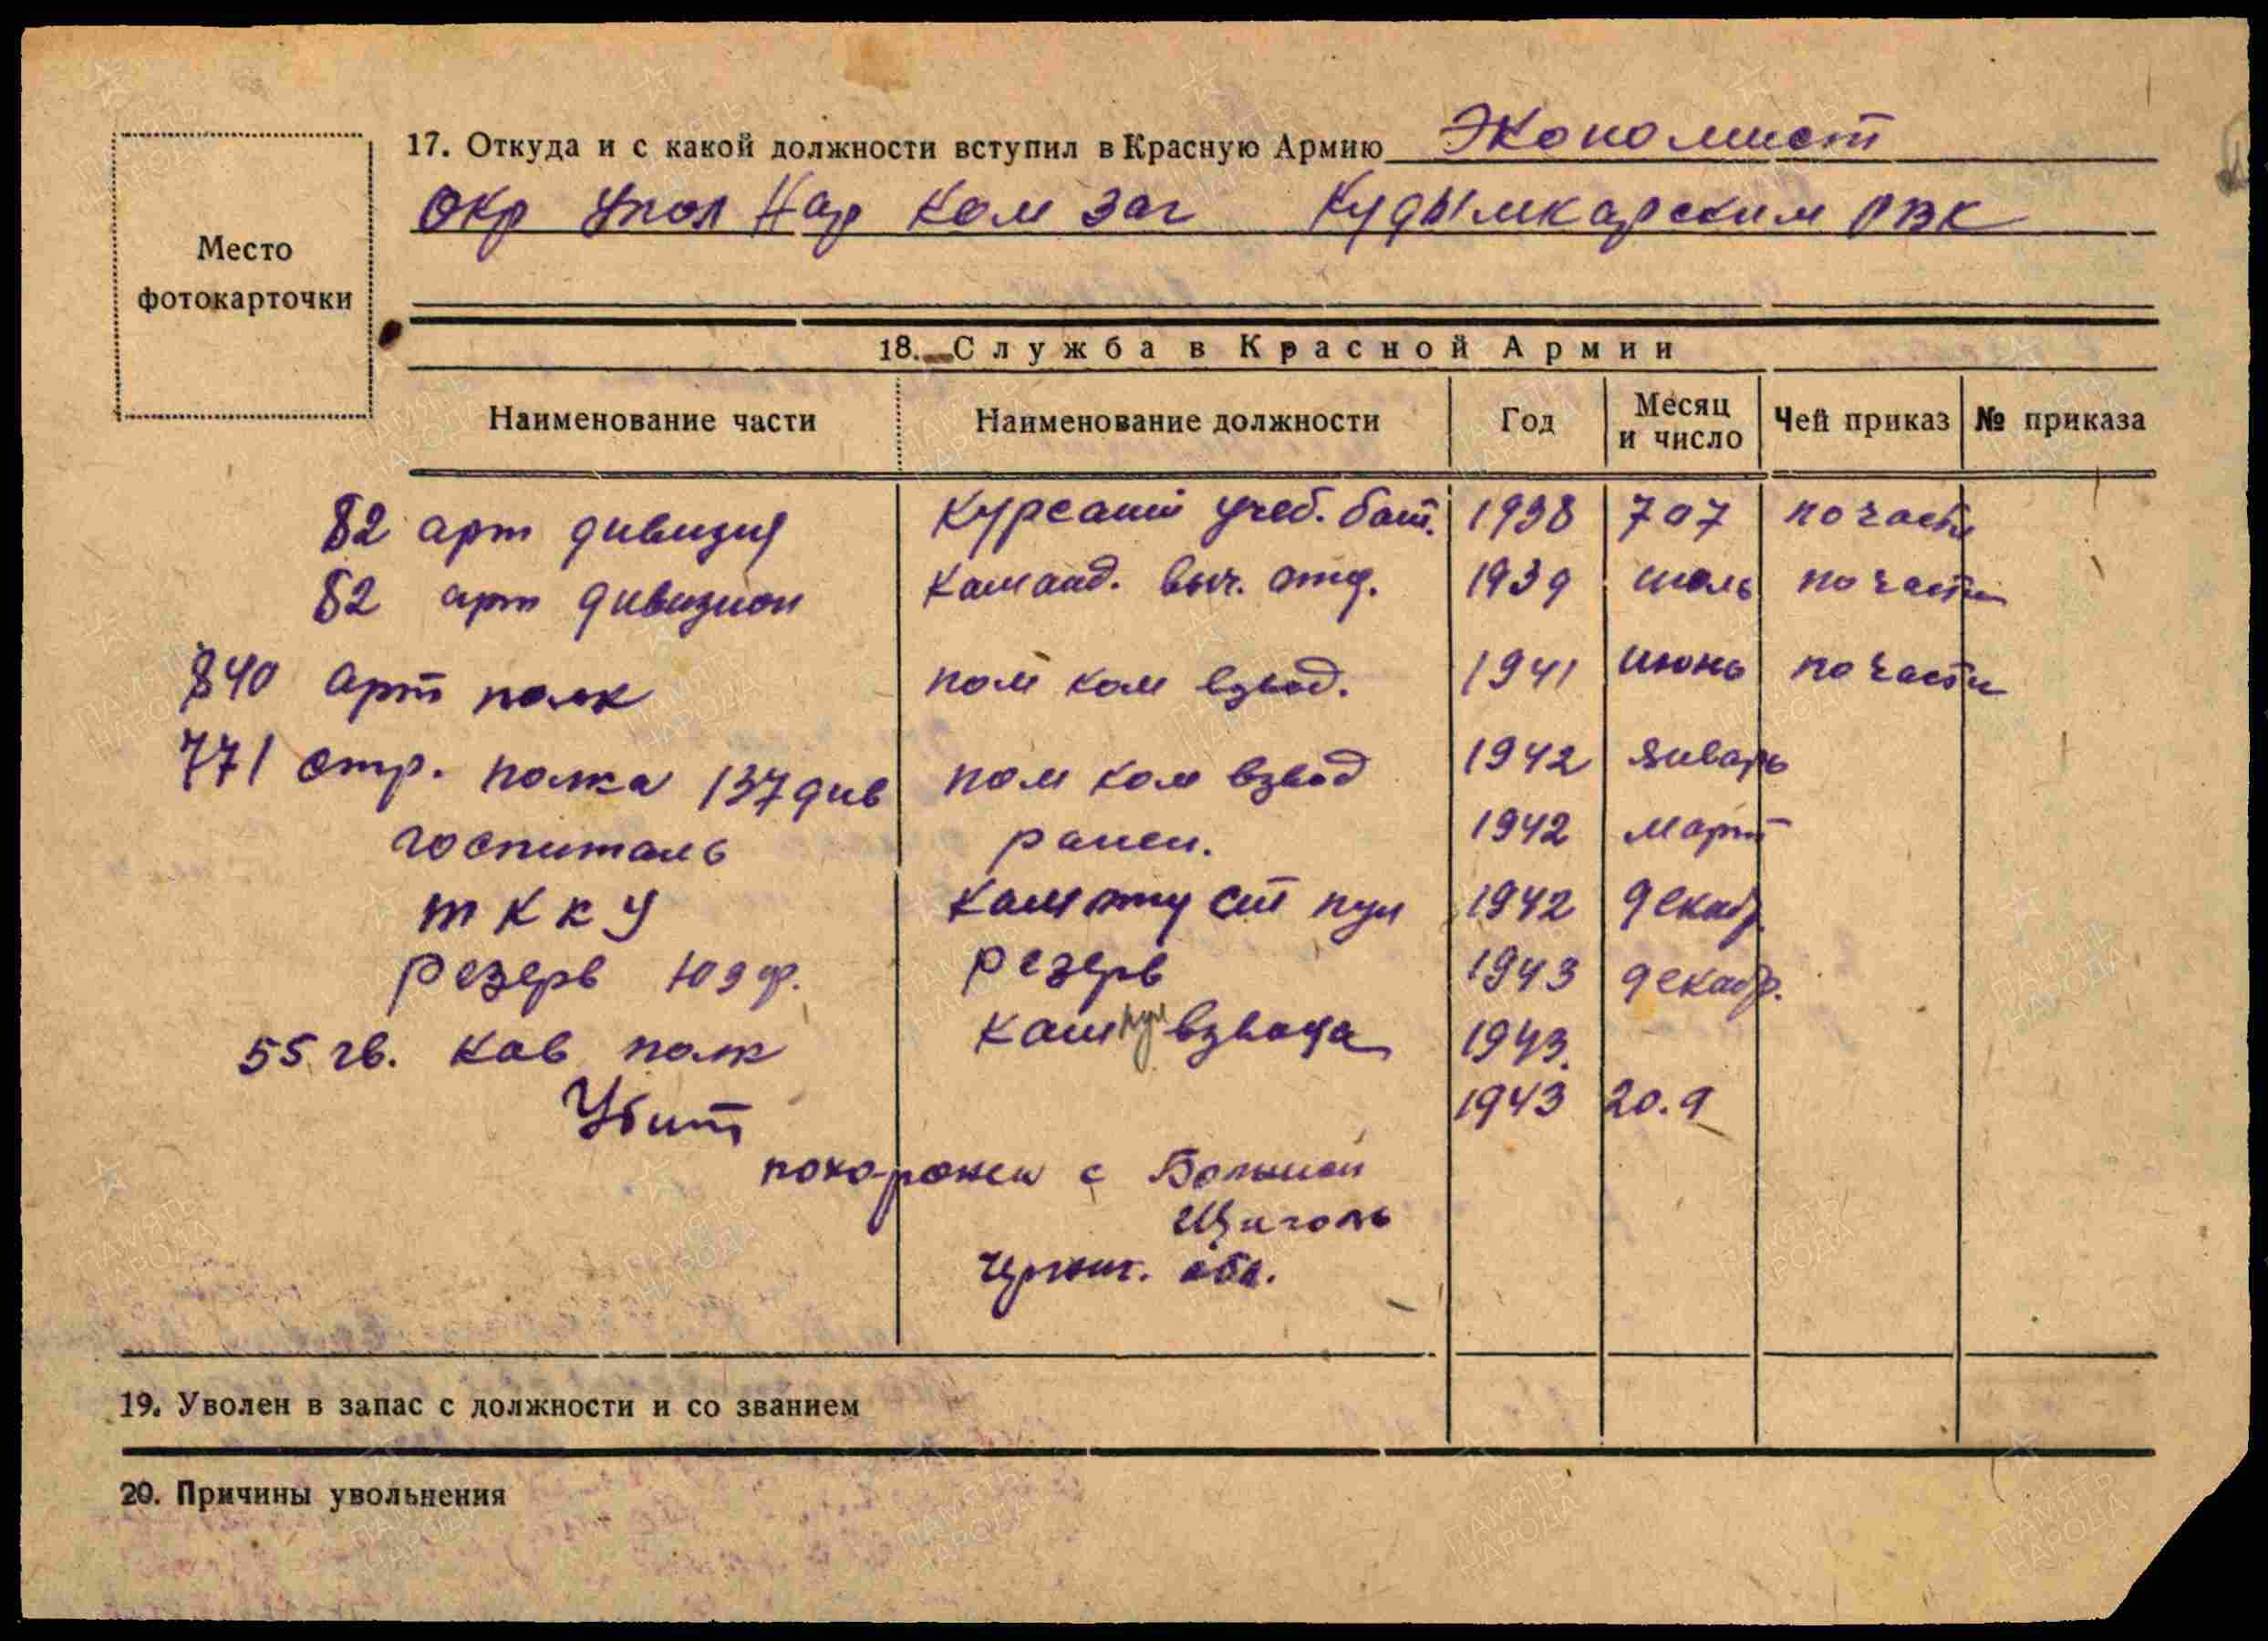 17. Откуда и с какой должности вступил в Красную Армию Экономист
Окр Упол Нар Ком Заг Кудымкарским РВК
Место
фотокарточки
18. Служба в Красной Армии
Наименование части Наименование должности Год Месяц и число Чей приказ № приказа
82 арт дивизия Курсант учеб. бат. 1938 707 по части
82 арт дивизион Команд. выч. отд. 1939 июль по части
840 арт полк пом ком взвод. 1941 июнь по части
771 стр. полка 137 див пом ком взвод 1942 январь
госпиталь ранен. 1942 март
ТККУ Ком ст пул 1942 декабр.
резерв Юзф. резерв 1943 декабр.
55 гв. кав полк Ком пул взвода 1943.
Убит 1943 20.9
похоронен с Большой
Щиголь
Черниг. обл.
19. Уволен в запас с должности и со званием
20. Причины увольнения
ПАМЯТЬ НАРОДА